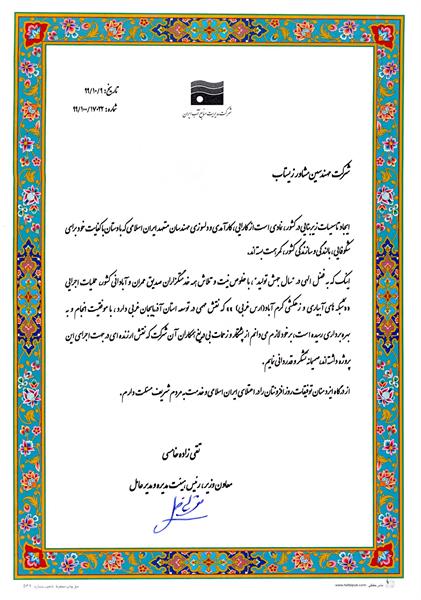 شرکت مدیریت منابع آب ایران
تاریخ: ۹۹/۱۰/۹
شماره: ۹۹/۱۰۰/۱۷۰۲۲
شرکت مهندسین مشاور زیستاب
ایجاد تاسیسات زیربنایی در کشور، نمادی است از کارایی، کارآمدی و دلسوزی مهندسان متعهد ایران اسلامی که با دستان با کفایت خود برای
شکوفایی، بالندگی و سازندگی کشور، کمر همت بسته‌اند.
اینک که به فضل الهی در "سال جهش تولید"، با خلوص نیت و تلاش همه خدمتگزاران صدیق عمران و آبادانی کشور، عملیات اجرایی
"شبکه های آبیاری و زهکشی کرم آباد (ارس غربی)" که نقش مهمی در توسعه استان آذربایجان غربی دارد، با موفقیت انجام و به
بهره‌برداری رسیده است، بر خود لازم می دانم از پشتکار و زحمات بی دریغ همکاران آن شرکت که نقش ارزنده ای در جهت اجرای این
پروژه داشته‌اند، صمیمانه تشکر و قدردانی نمایم.
از درگاه ایزد منان توفیقات روزافزونتان را در اعتلای ایران اسلامی و خدمت به مردم شریف مسئلت دارم.
تقی زاده خامسی
معاون وزیر، رئیس هیئت مدیره و مدیرعامل
www.hafezpub.com